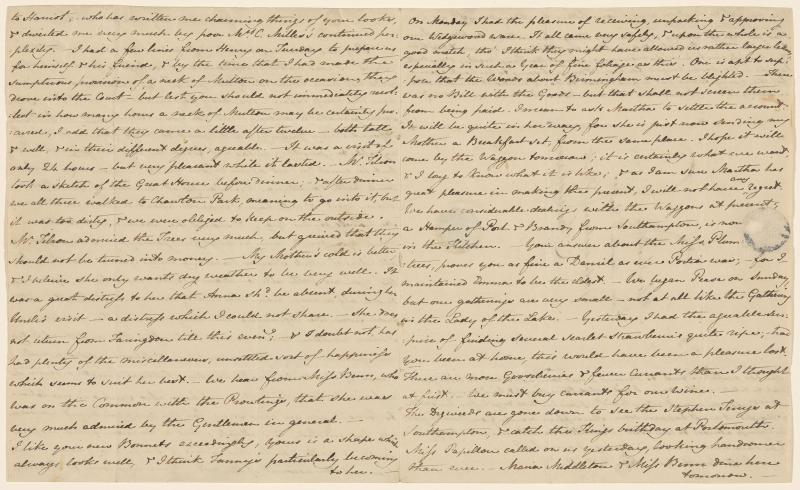 to Harriot, who has written me charming things of your looks,
& diverted me very much by poor Mrs. C. Milles's continued per=
plexity. I had a few lines from Henry on Tuesday to prepare us
for himself & his friend, & by the time that I had made the
sumptuous provision of a neck of Mutton on the occasion, they
drove into the Court – but lest you should not immediately recol:
lect in how many hours a neck of Mutton may be certainly pro:
:cured, I add that they came a little after twelve – both tall,
& well, & in their different degrees, agreable. – It was a visit of
only 24 hours – but very pleasant while it lasted. – Mr. Tilson
took a sketch of the Great House before dinner; – & after dinner
we all three walked to Chawton Park, meaning to go into it, but
it was too dirty, & we were obliged to keep on the outside.
Mr. Tilson admired the Trees very much, but greived that they
should not be turned into money. – My Mother's cold is better,
& I beleive she only wants dry weather to be very well. It
was a great distress to her that Anna shd. be absent, during her
Uncle's visit – a distress which I could not share. – She does
not return from Faringdon till this eveng; – & I doubt not, has
had plenty of the miscellaneous, unsettled sort of happiness
which seems to suit her best. – We hear from Miss Benn, who
was on the Common with the Prowtings, that she was
very much admired by the Gentlemen in general. –
I like your new Bonnets exceedingly, yours is a shape which
always looks well, & I think Fanny's particularly becoming
to her. –
On Monday I had the pleasure of receiving, unpacking & approving
our Wedgwood ware. It all came very safely, & upon the whole is a
good match, tho' I think they might have allowed us rather larger leaves,
especially in such a Year of fine foliage as this. One is apt to sup:
:pose that the Woods about Birmingham must be blighted. – There
was no Bill with the Goods – but that shall not screen them
from being paid. I mean to ask Martha to settle the account.
It will be quite in her way, for she is just now sending my
Mother a Breakfast set, from the same place. I hope it will
come by the Waggon tomorrow; it is certainly what we want,
& I long to know what it is like; & as I am sure Martha has
great pleasure in making the present, I will not have any regret.
We have considerable dealings with the Waggons at present;
a Hamper of Port & Brandy from Southampton, is now
in the Kitchen. – Your answer about the Miss Plum
:trees, proves you as fine a Daniel as ever Portia was; – for I
maintained Emma to be the eldest. – We began Pease on Sunday,
but our gatherings are very small – not at all like the Gathering
in the Lady of the Lake. – Yesterday I had the agreable sur:
:prise of finding several scarlet strawberries quite ripe; – had
you been at home, this would have been a pleasure lost.
There are more Gooseberries & fewer Currants than I thought
at first. – We must buy currants for our Wine. –
The Digweeds are gone down to see the Stephen Terrys at
Southampton, & catch the Kings birthday at Portsmouth.
Miss Papillon called on us yesterday, looking handsomer
than ever. – Maria Middleton & Miss Benn dine here
tomorrow. –